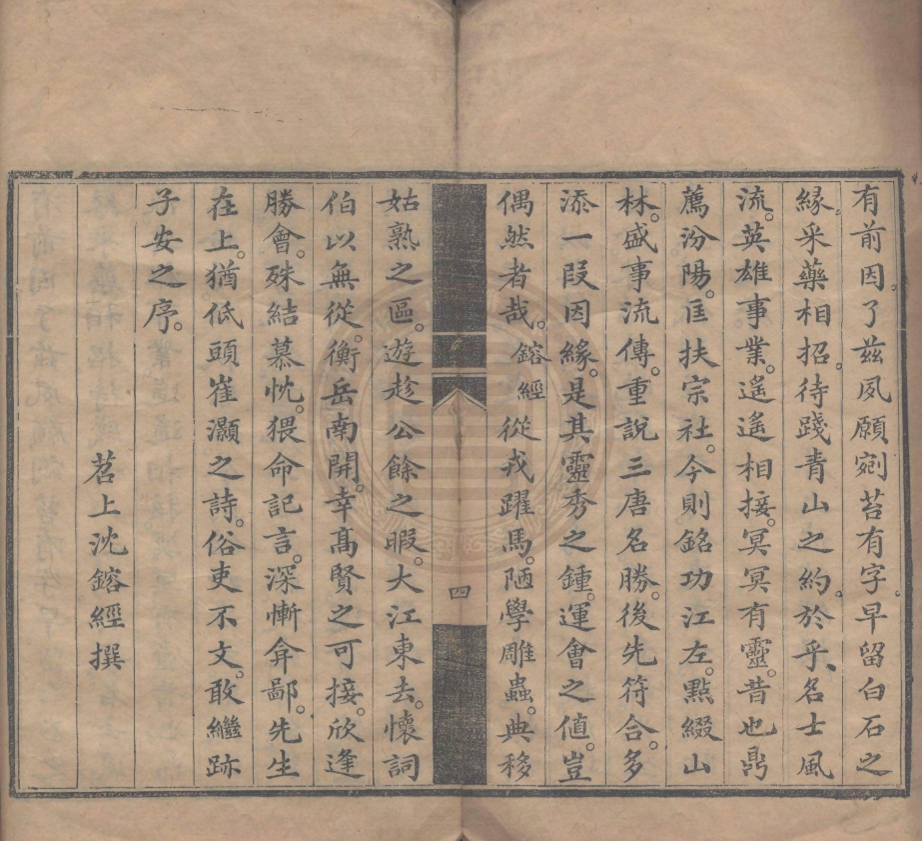 有前因。了茲夙願。剜苔有字。早留白石之
緣。采藥相招。待踐青山之約。於乎、名士風
流。英雄事業。遙遙相接。冥冥有靈。昔也鬲
薦汾陽。匡扶宗社。今則銘功江左。點綴山
林。盛事流傳。重說三唐名勝。後先符合。多
添一段因緣。是其靈秀之鍾。運會之値。豈
偶然者哉。鎔經從戎躍馬。陋學雕蟲。典移
四
姑熟之區。遊趁公餘之暇。大江東去。懷詞
伯以無從。衡岳南開。幸高賢之可接。欣逢
勝會。殊結慕忱。猥命記言。深慚弇鄙。先生
在上。猶低頭崔灝之詩。俗吏不文。敢繼跡
子安之序。
苕上沈鎔經撰